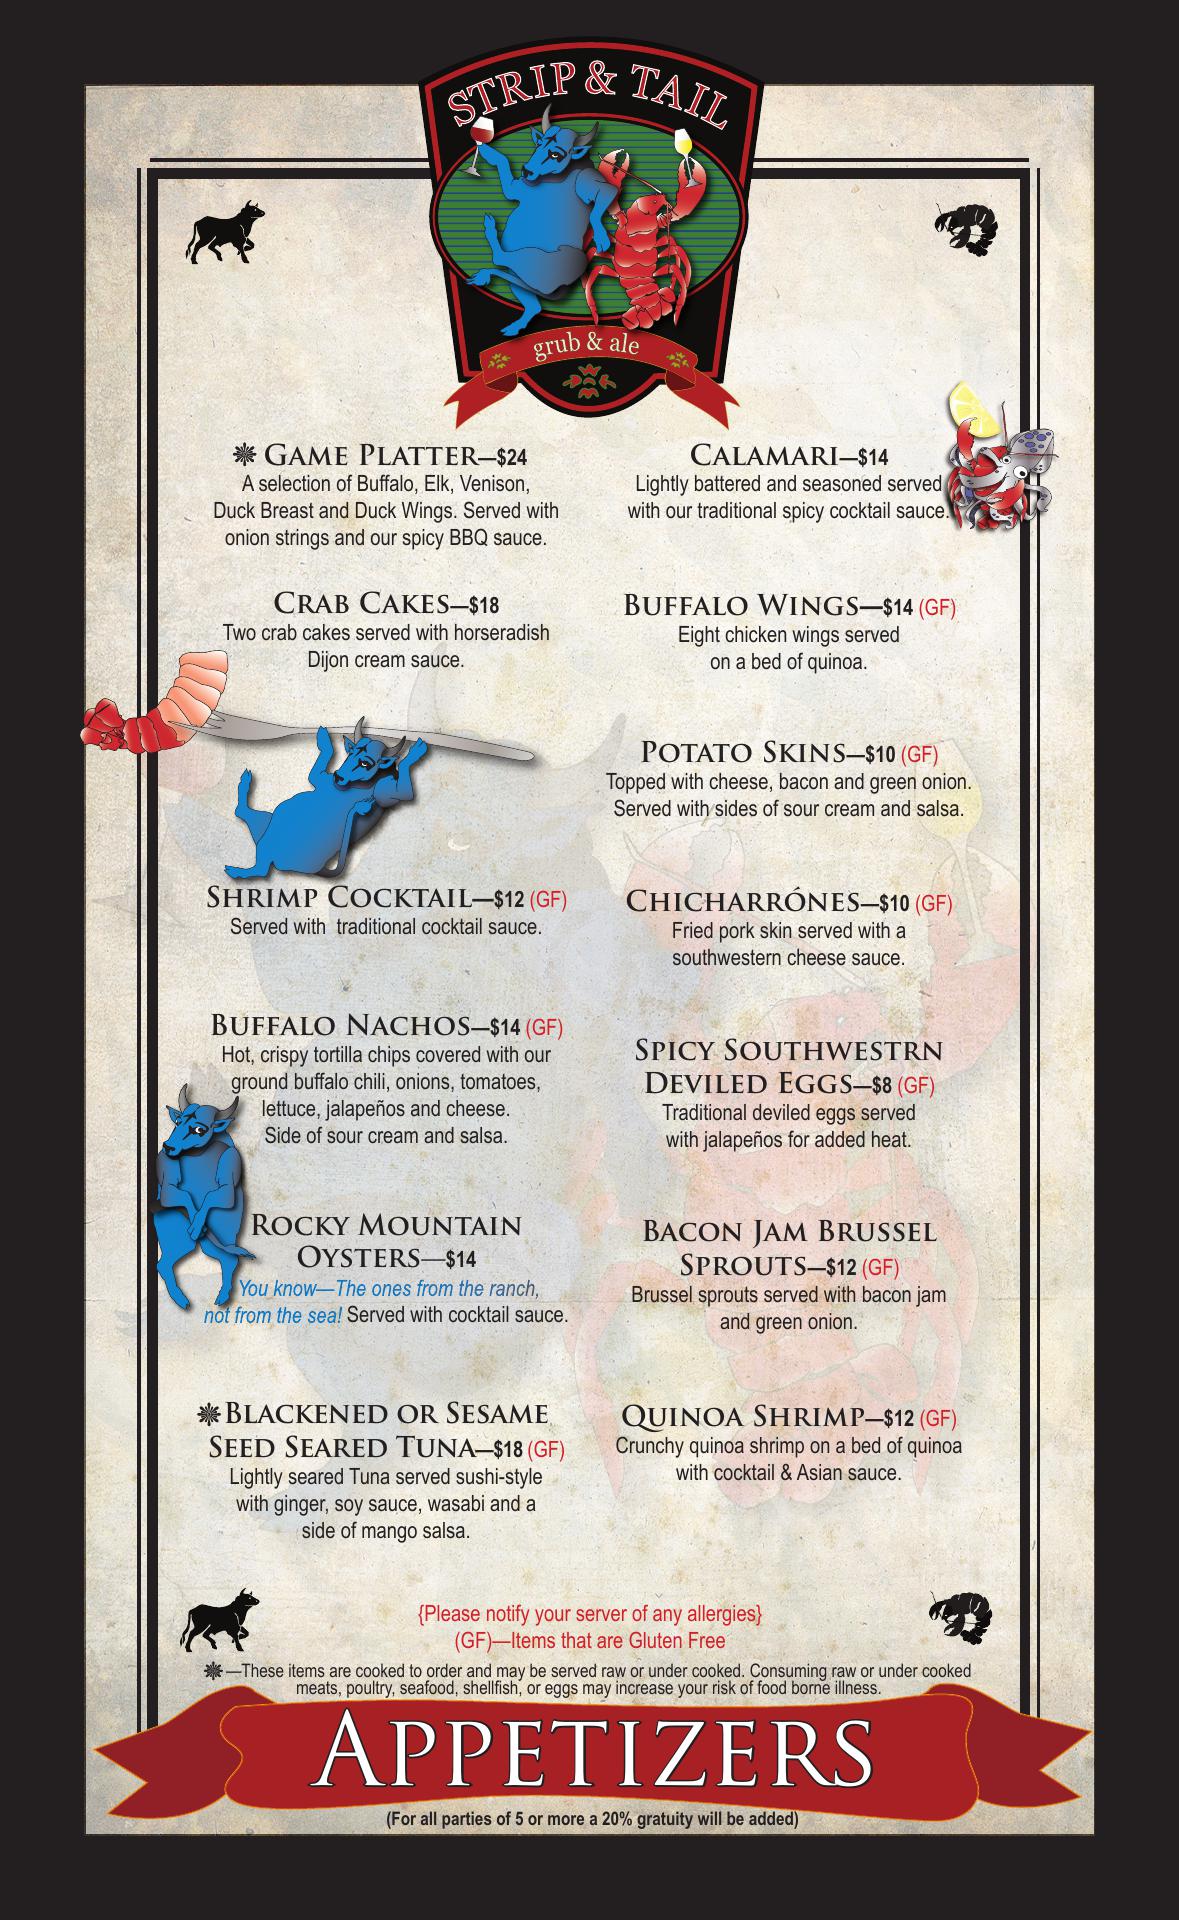 STRIP & TAIL
grub & ale
Game Platter—$24
A selection of Buffalo, Elk, Venison,
Duck Breast and Duck Wings. Served with
onion strings and our spicy BBQ sauce.
Crab Cakes—$18
Two crab cakes served with horseradish
Dijon cream sauce.
Shrimp Cocktail—$12 (GF)
Served with traditional cocktail sauce.
Buffalo Nachos—$14 (GF)
Hot, crispy tortilla chips covered with our
ground buffalo chili, onions, tomatoes,
lettuce, jalapeños and cheese.
Side of sour cream and salsa.
Rocky Mountain
Oysters—$14
You know—The ones from the ranch,
not from the sea! Served with cocktail sauce.
Blackened or Sesame
Seed Seared Tuna—$18 (GF)
Lightly seared Tuna served sushi-style
with ginger, soy sauce, wasabi and a
side of mango salsa.
Calamari—$14
Lightly battered and seasoned served
with our traditional spicy cocktail sauce.
Buffalo Wings—$14 (GF)
Eight chicken wings served
on a bed of quinoa.
Potato Skins—$10 (GF)
Topped with cheese, bacon and green onion.
Served with sides of sour cream and salsa.
Chicharrónes—$10 (GF)
Fried pork skin served with a
southwestern cheese sauce.
Spicy Southwestrn
Deviled Eggs—$8 (GF)
Traditional deviled eggs served
with jalapeños for added heat.
Bacon Jam Brussel
Sprouts—$12 (GF)
Brussel sprouts served with bacon jam
and green onion.
Quinoa Shrimp—$12 (GF)
Crunchy quinoa shrimp on a bed of quinoa
with cocktail & Asian sauce.
{Please notify your server of any allergies}
(GF)—Items that are Gluten Free
—These items are cooked to order and may be served raw or under cooked. Consuming raw or under cooked
meats, poultry, seafood, shellfish, or eggs may increase your risk of food borne illness.
Appetizers
(For all parties of 5 or more a 20% gratuity will be added)